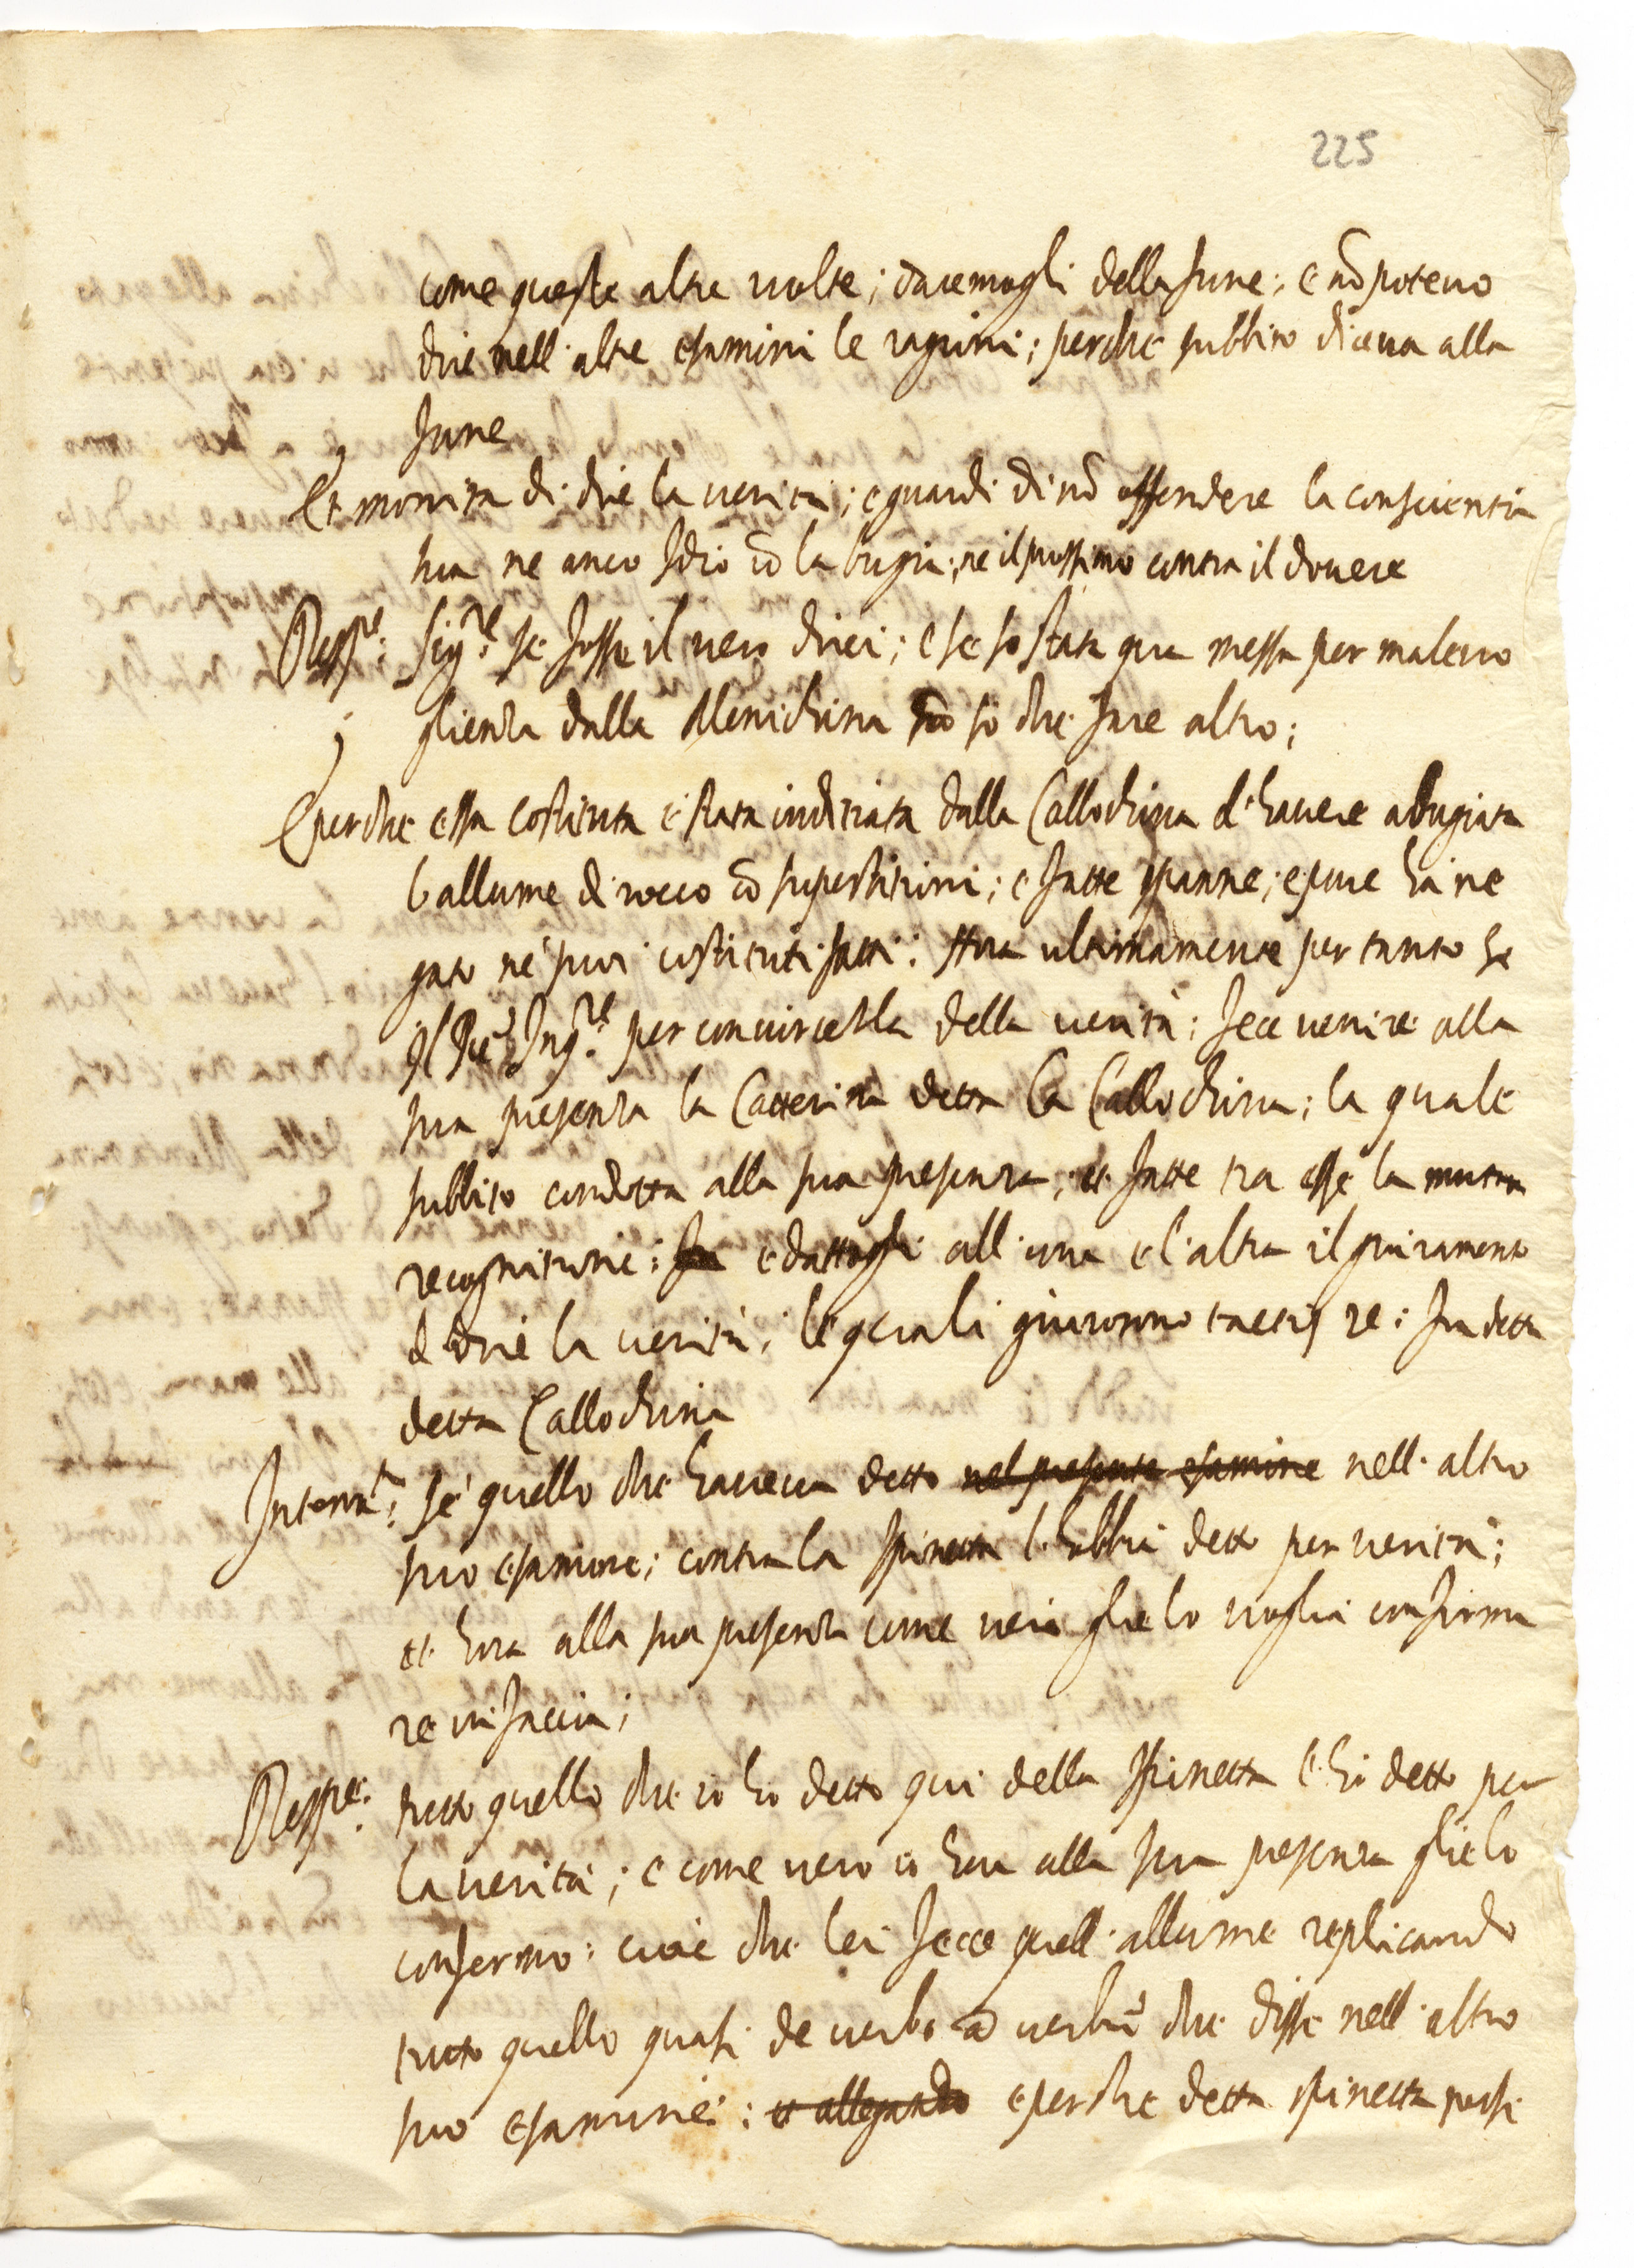 225
come queste altre uolte; dacemogli della fune; e nõ poteuo
dire nell'altre esamini le ragioni; perche subbito diceua alla
fune
Et monita di dire la uerità; e guardi di nõ offendere la conscientia
sua ne anco Idio cõ la bugia; ne il prossimo contra il douere
Respe: Sigre se fosse il uero direi; e se so stata qua messa per maleuo
glienza dalla Menichina nõ so che fare altro;
E perche essa costituta è stata inditiata dalla Callochina d'hauere abrugiata
l'allume di rocco cõ superstitioni; e fatte spanne; e pure hà ne
gato ne suoi costituti fatti: hora ultimamente per tanto
Il Ingre per conuincerla della uerità; fece uenire alla
sua presenza la Catterina detta la Callochina; la quale
subbito condotta alla sua presenza; et fatte tra esse la mutua
recognitione: e dattogli all'una e l'altra il giuramento
di dire la uerità; le quali giurorono tactis re: fu detta
detta Callochina
Interrta: Se quello che haueua detto nel presente esamine nell'altro
suo esamine; contra la Spinetta l'habbia detto per uerità;
et hora alla sua presenza come uero glie lo uoglia confirma
re in faccia;
Respe: tutto quello che io ho detto qui della Spinetta l'hò detto per
la uerità; e come uero io hora alla sua presenza glielo
confermo: cioè che lei fece quell'allume replicando
tutto quello quasi de uerbo ad uerbũ che disse nell'altro
suo esamine: et allegando e perche detta Spinetta